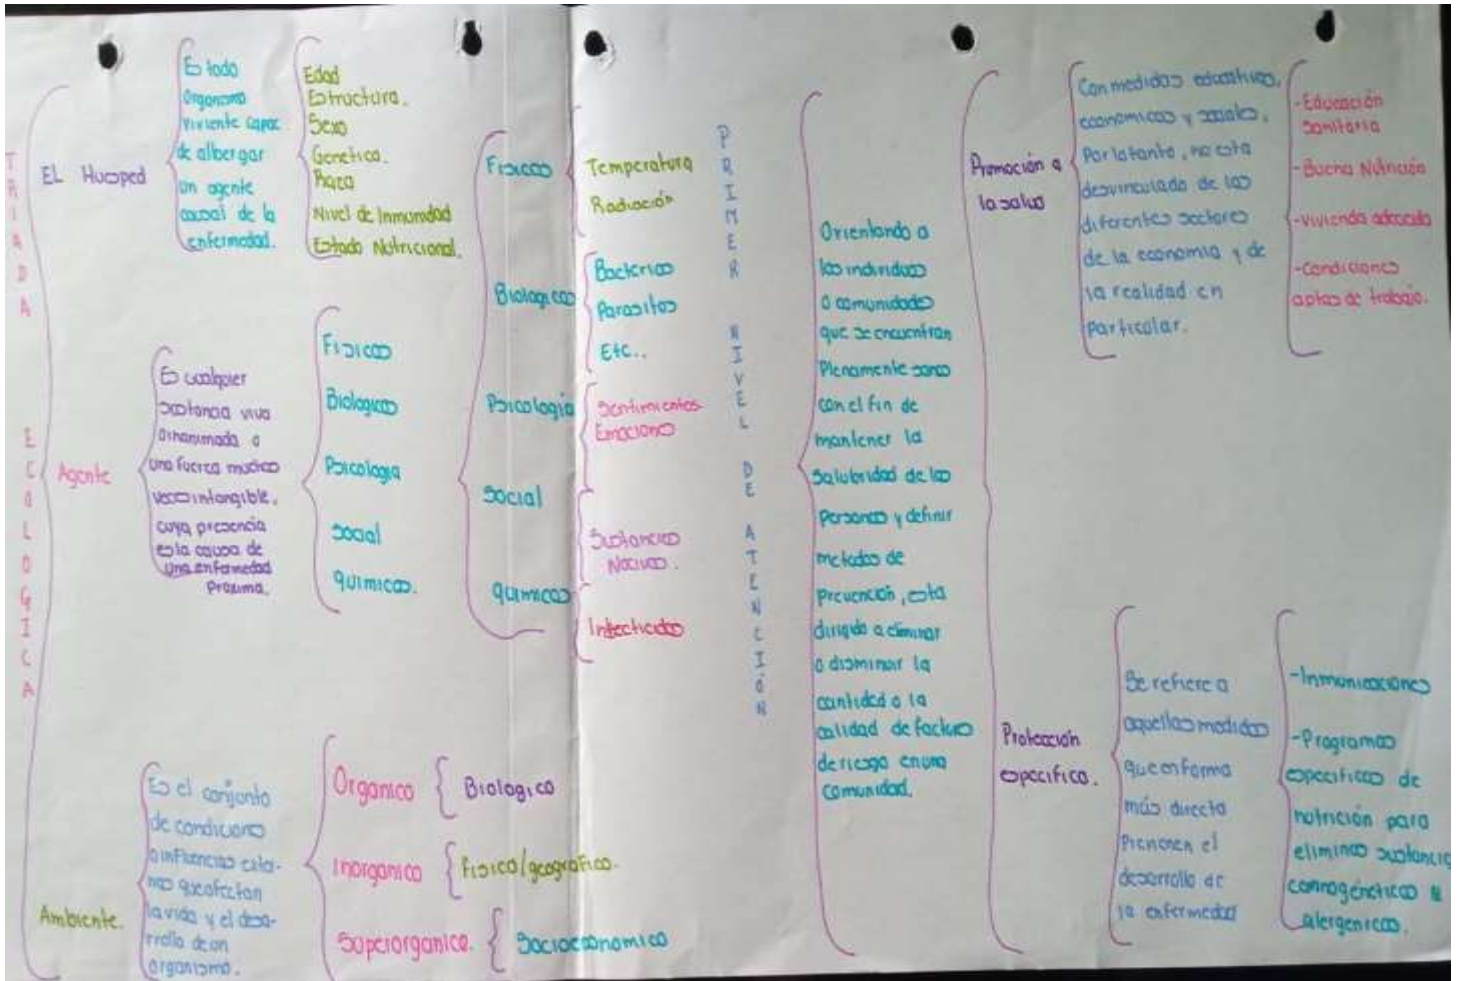 TRIADA ECOLOGICA
EL Huesped
Es todo
organismo
viviente capaz
de albergar
un agente
causal de la
enfermedad.
Edad
Estructura.
Sexo
Genetica.
Raza
Nivel de Inmunidad
Estado Nutricional.
Agente
Es cualquier
sustancia viva
o inanimada o
una fuerza
veces intangible,
cuya presencia
es la causa de
una enfermedad
Proxima.
Fisicos
Biologicos
Psicologia
Social
quimicos.
Fisicos
Temperatura
Radiación
Biologicos
Bacterias
Parasitos
Etc..
Psicologia
Sentimientos
Emociones
Social
Sustancias
Nocivas.
quimicos
Ambiente.
Es el conjunto
de condiciones
o influencias exter-
nas que afectan
la vida y el desa-
rrollo de un
organismo.
Organico
Biologico
Inorganico
Fisico/geografico.
Superorganico.
Socioeconomico
PRIMER NIVEL DE ATENCIÓN
Orientando a
los individuos
o comunidades
que se encuentran
Plenamente sanos
con el fin de
mantener la
Salubridad de las
Personas y definir
metodos de
prevención, esta
dirigido a eliminar
o disminuir la
cantidad o la
calidad de
de riesgo en una
comunidad.
Promoción a
la salud
Con medidas educativas,
economicas y sociales.
Por lo tanto, no esta
desvinculada de los
diferentes sectores
de la economia y de
la realidad en
particular.
-Educación
Sanitaria
-Buena Nutrición
-Vivienda adecuada
-Condiciones
aptas de trabajo.
Protección
especifica.
Se refiere a
aquellas medidas
que en forma
más directa
Previenen el
desarrollo de
la enfermedad
-Inmunizaciones
-Programas
especificos de
nutrición para
sustancias
alergenicos.